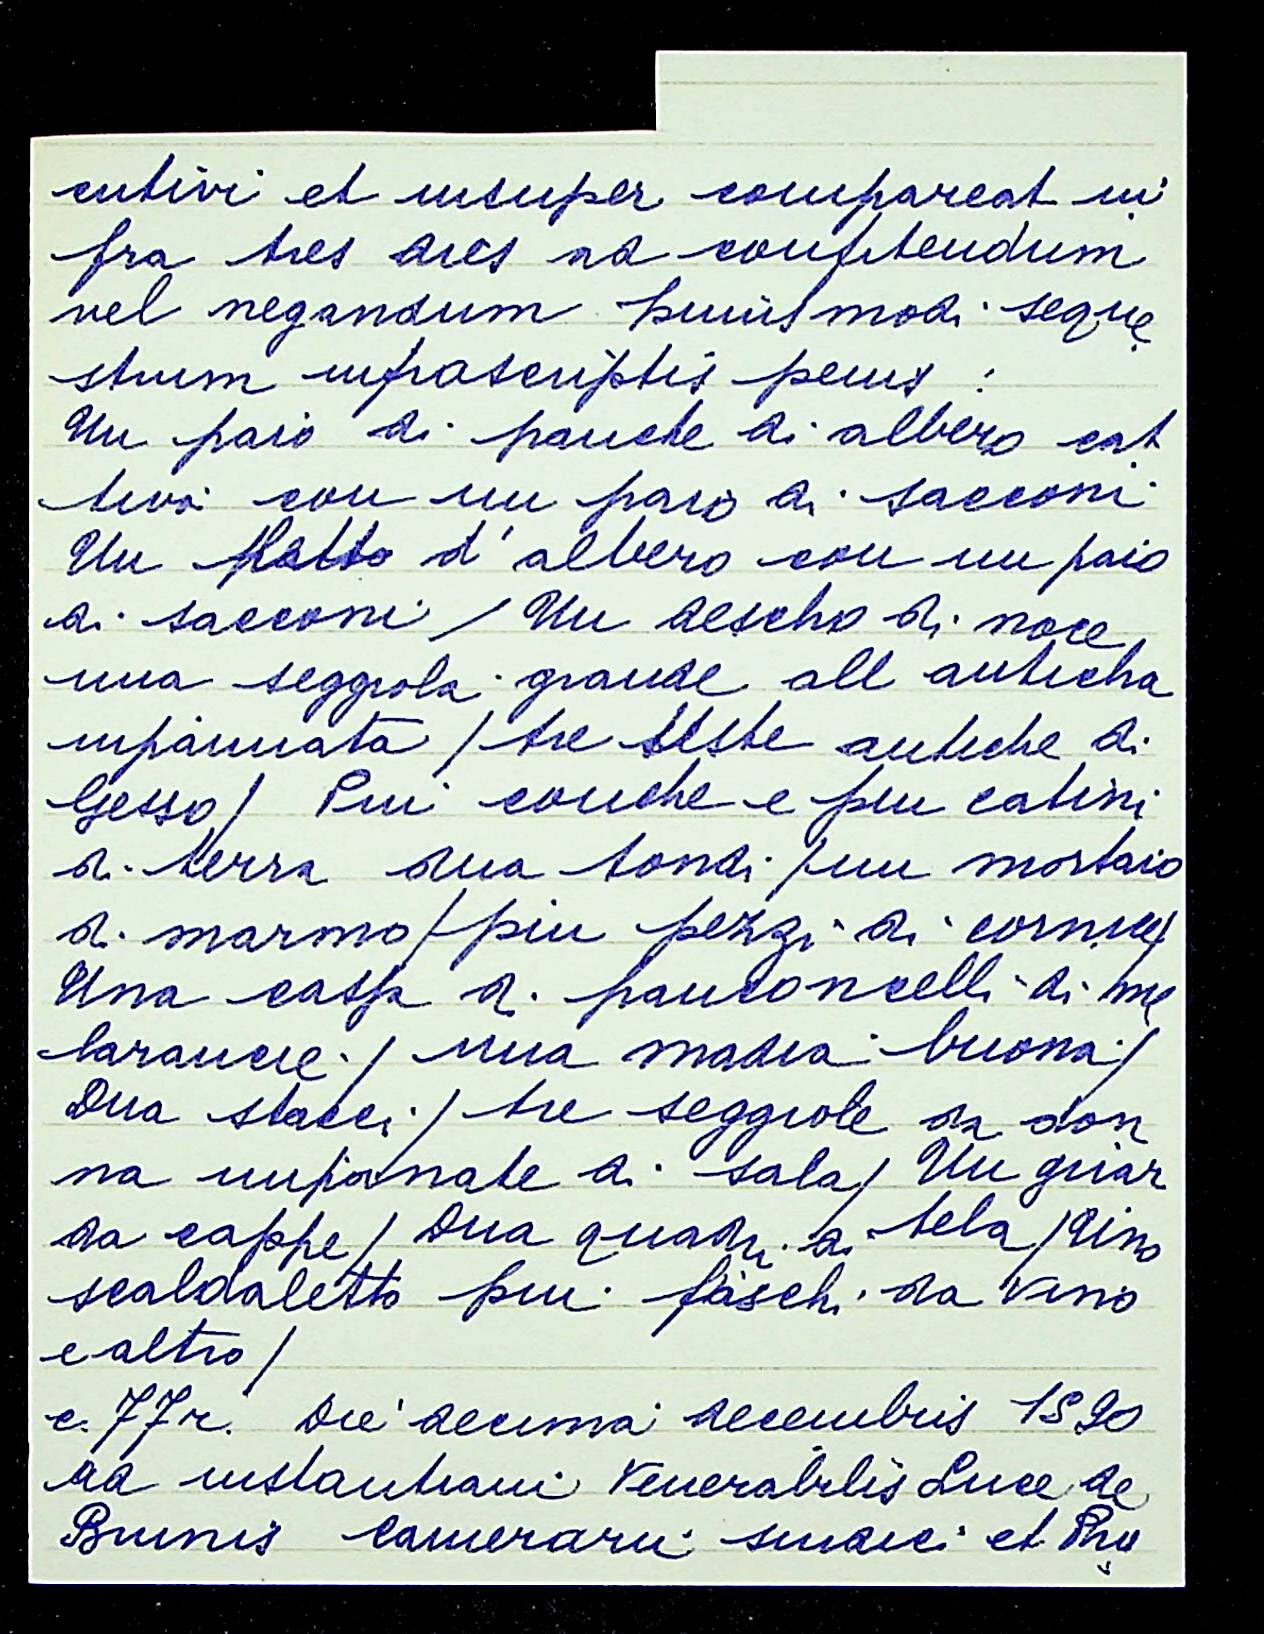 cutivi et insuper compareat in
fra tres dies ad confitendum
vel negandum huiusmodi seque
strum infrascriptis penes :
Un paio di panche di albero cat
tivo con un paro di sacconi
Un d'albero con un paio
di sacconi / Un descho di noce
una seggiola grande all anticha
inpannata / tre teste antiche di
Gesso / Piu conche e piu catini
di terra dua tondi / un mortaio
di marmo / piu pezzi di cornice /
Una cassa di panconcelli di me
larancie / una madia buona /
Dua stacci / tre seggiole da don
na inpannate di sala / Un guar
da cappe / Dua quadri di tela / Uno
scaldaletto piu fiaschi da vino
e altro /
c. 77r. Die decima decembris 1590
ad instantiam Venerabilis Luce de
Brunis Camerarii sindici et Pro